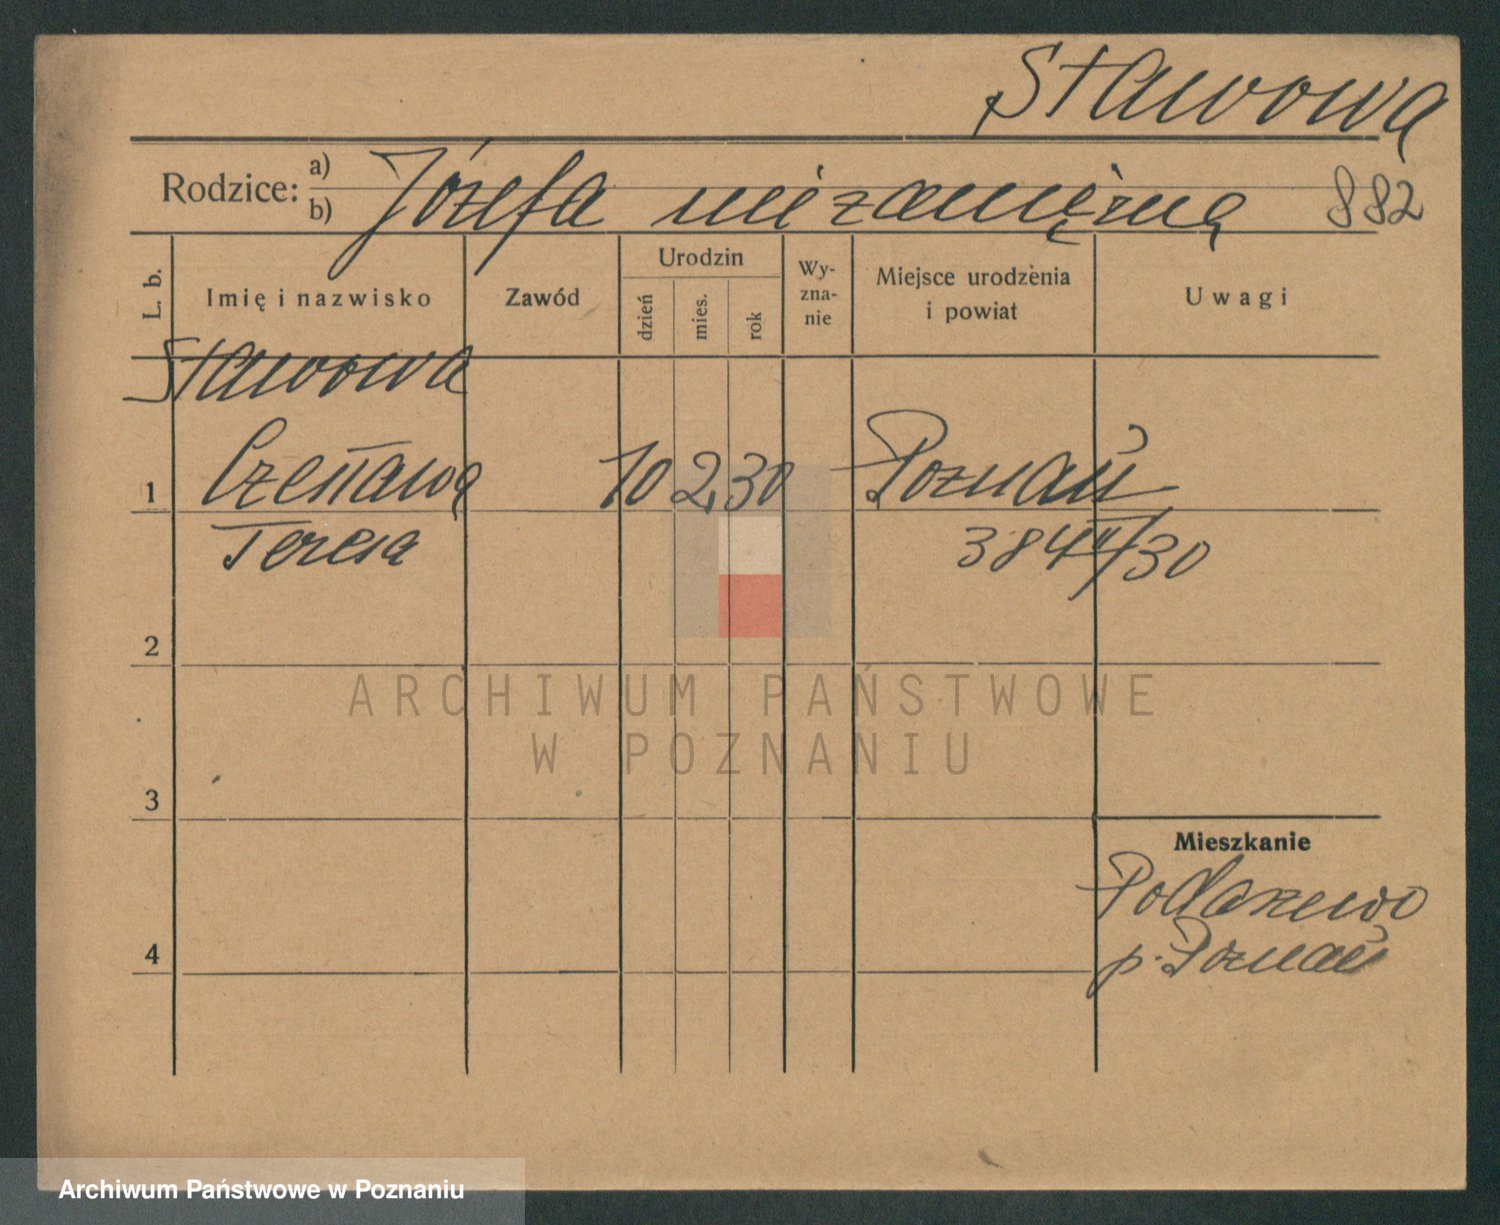 Stawowa
Rodzice: a) b) Józefa niezamężna 882
L. b. Imię i nazwisko Zawód Urodzin dzień mies. rok Wy-zna-nie Miejsce urodzenia i powiat Uwagi
Stawowa
1 Czesława 10 2. 30 Poznań
Teresa 384 II/30
2
ARCHIWUM PAŃSTWOWE
W POZNANIU
3
Mieszkanie
p. Poznań
4
Archiwum Państwowe w Poznaniu